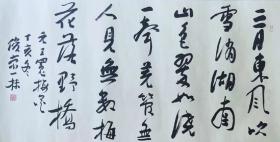 三月东風吹
雪消湖南
山色翠如澆
一聲羌管無
人見無數梅
花落野橋
元王冕梅花
丁亥冬
俊京一栋